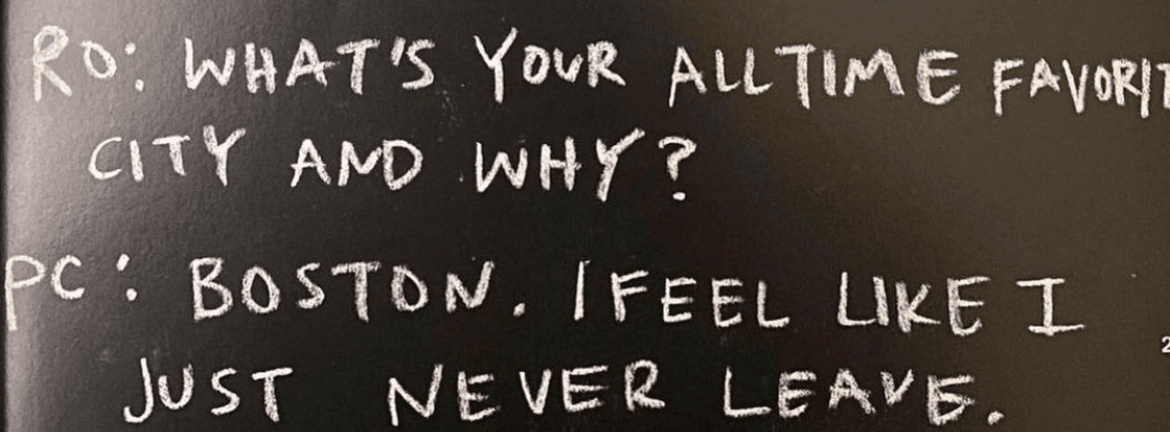 RO: WHAT'S YOUR ALLTIME FAVORIT
CITY AND WHY?
PC: BOSTON. I FEEL LIKE I
JUST NEVER LEAVE.
2